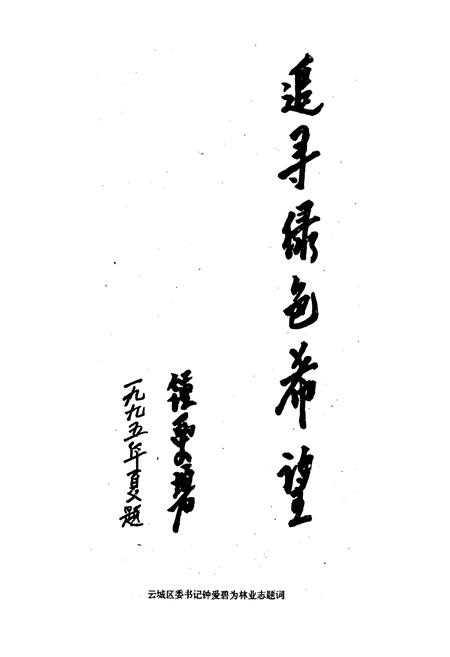 追寻绿色希望
钟爱碧
一九九五年夏题
云城区委书记钟爱碧为林业志题词